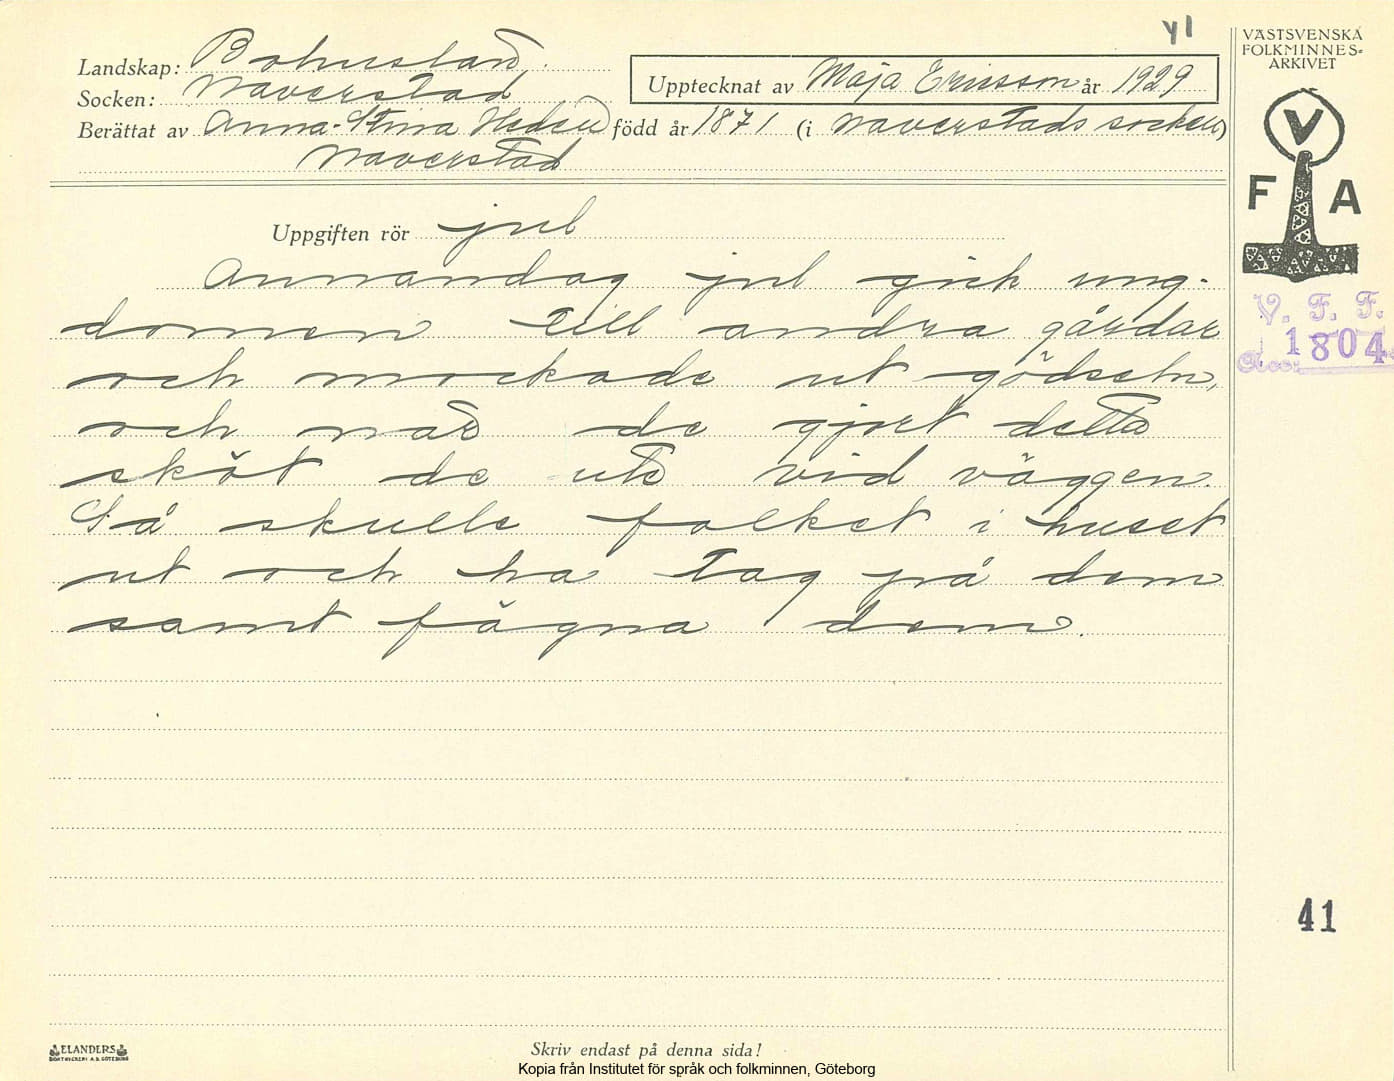 41
VÄSTSVENSKA
FOLKMINNES=
ARKIVET
Landskap: Bohuslän.
Socken: Naverstad
Upptecknat av Maja Ericsson år 1929
Berättat av Anna-Stina Hedén född år 1871 (i Naverstads socken)
Naverstad
V
F A
Uppgiften rör jul
Annandag jul gick ung-
domen till andra gårdar
och mockade ut gödseln,
och när de gjort detta
sköt de ute vid väggen.
Så skulle folket i huset
ut och ha tag på dem
samt fägna dem.
V. F. F.
Acc: 1804
41
ELANDERS
BOKTRYCKERI A.B. GÖTEBORG
Skriv endast på denna sida!
Kopia från Institutet för språk och folkminnen, Göteborg